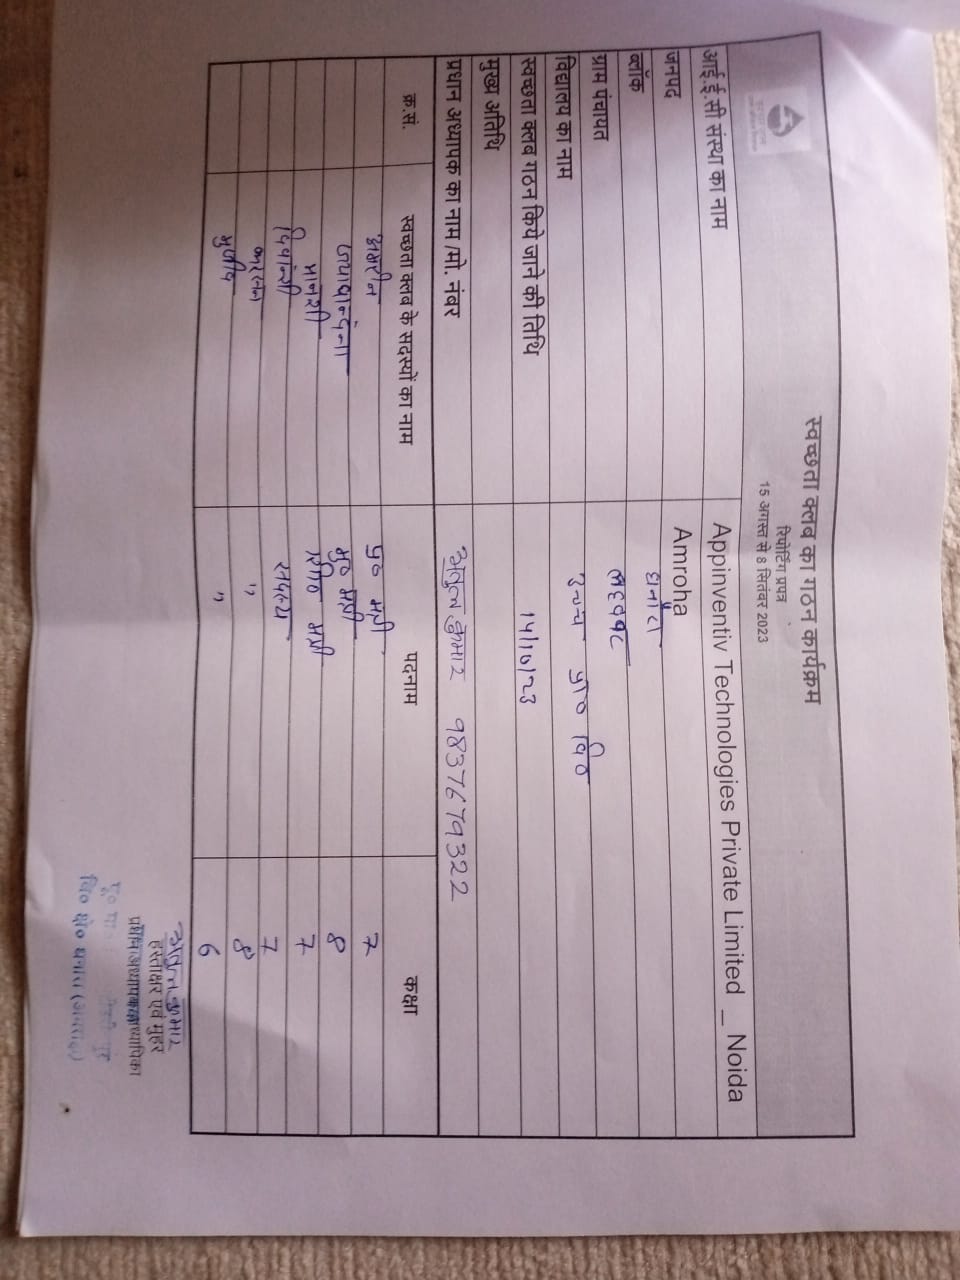 स्वच्छता क्लब का गठन कार्यक्रम
रिपोर्टिंग प्रपत्र
15 अगस्त से 8 सितंबर 2023
आई.ई.सी संस्था का नाम Appinventiv Technologies Private Limited _ Noida
जनपद Amroha
ब्लॉक धनौरा
ग्राम पंचायत
विद्यालय का नाम उच्च प्रा० वि०
स्वच्छता क्लब गठन किये जाने की तिथि 14/10/23
मुख्य अतिथि
प्रधान अध्यापक का नाम /मो. नंबर अतुल कुमार 9837679322
क्र.सं. स्वच्छता क्लब के सदस्यों का नाम पदनाम कक्षा
प्र० मंत्री 7
8
मानशी 7
सदस्य 7
" 8
" 6
अतुल कुमार
हस्ताक्षर एवं मुहर